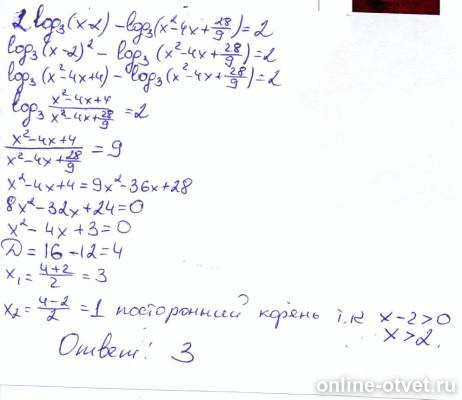 2 log₃(x-2) - log₃(x²-4x+28/9)=2
log₃(x-2)² - log₃(x²-4x+28/9)=2
log₃(x²-4x+4) - log₃(x²-4x+28/9)=2
log₃ (x²-4x+4)/(x²-4x+28/9) =2
(x²-4x+4)/(x²-4x+28/9) = 9
x²-4x+4=9x²-36x+28
8x²-32x+24=0
x²-4x+3=0
D=16-12=4
x₁=(4+2)/2=3
x₂=(4-2)/2=1 посторонний корень т.к x-2>0
x>2.
Ответ: 3
online-otvet.ru